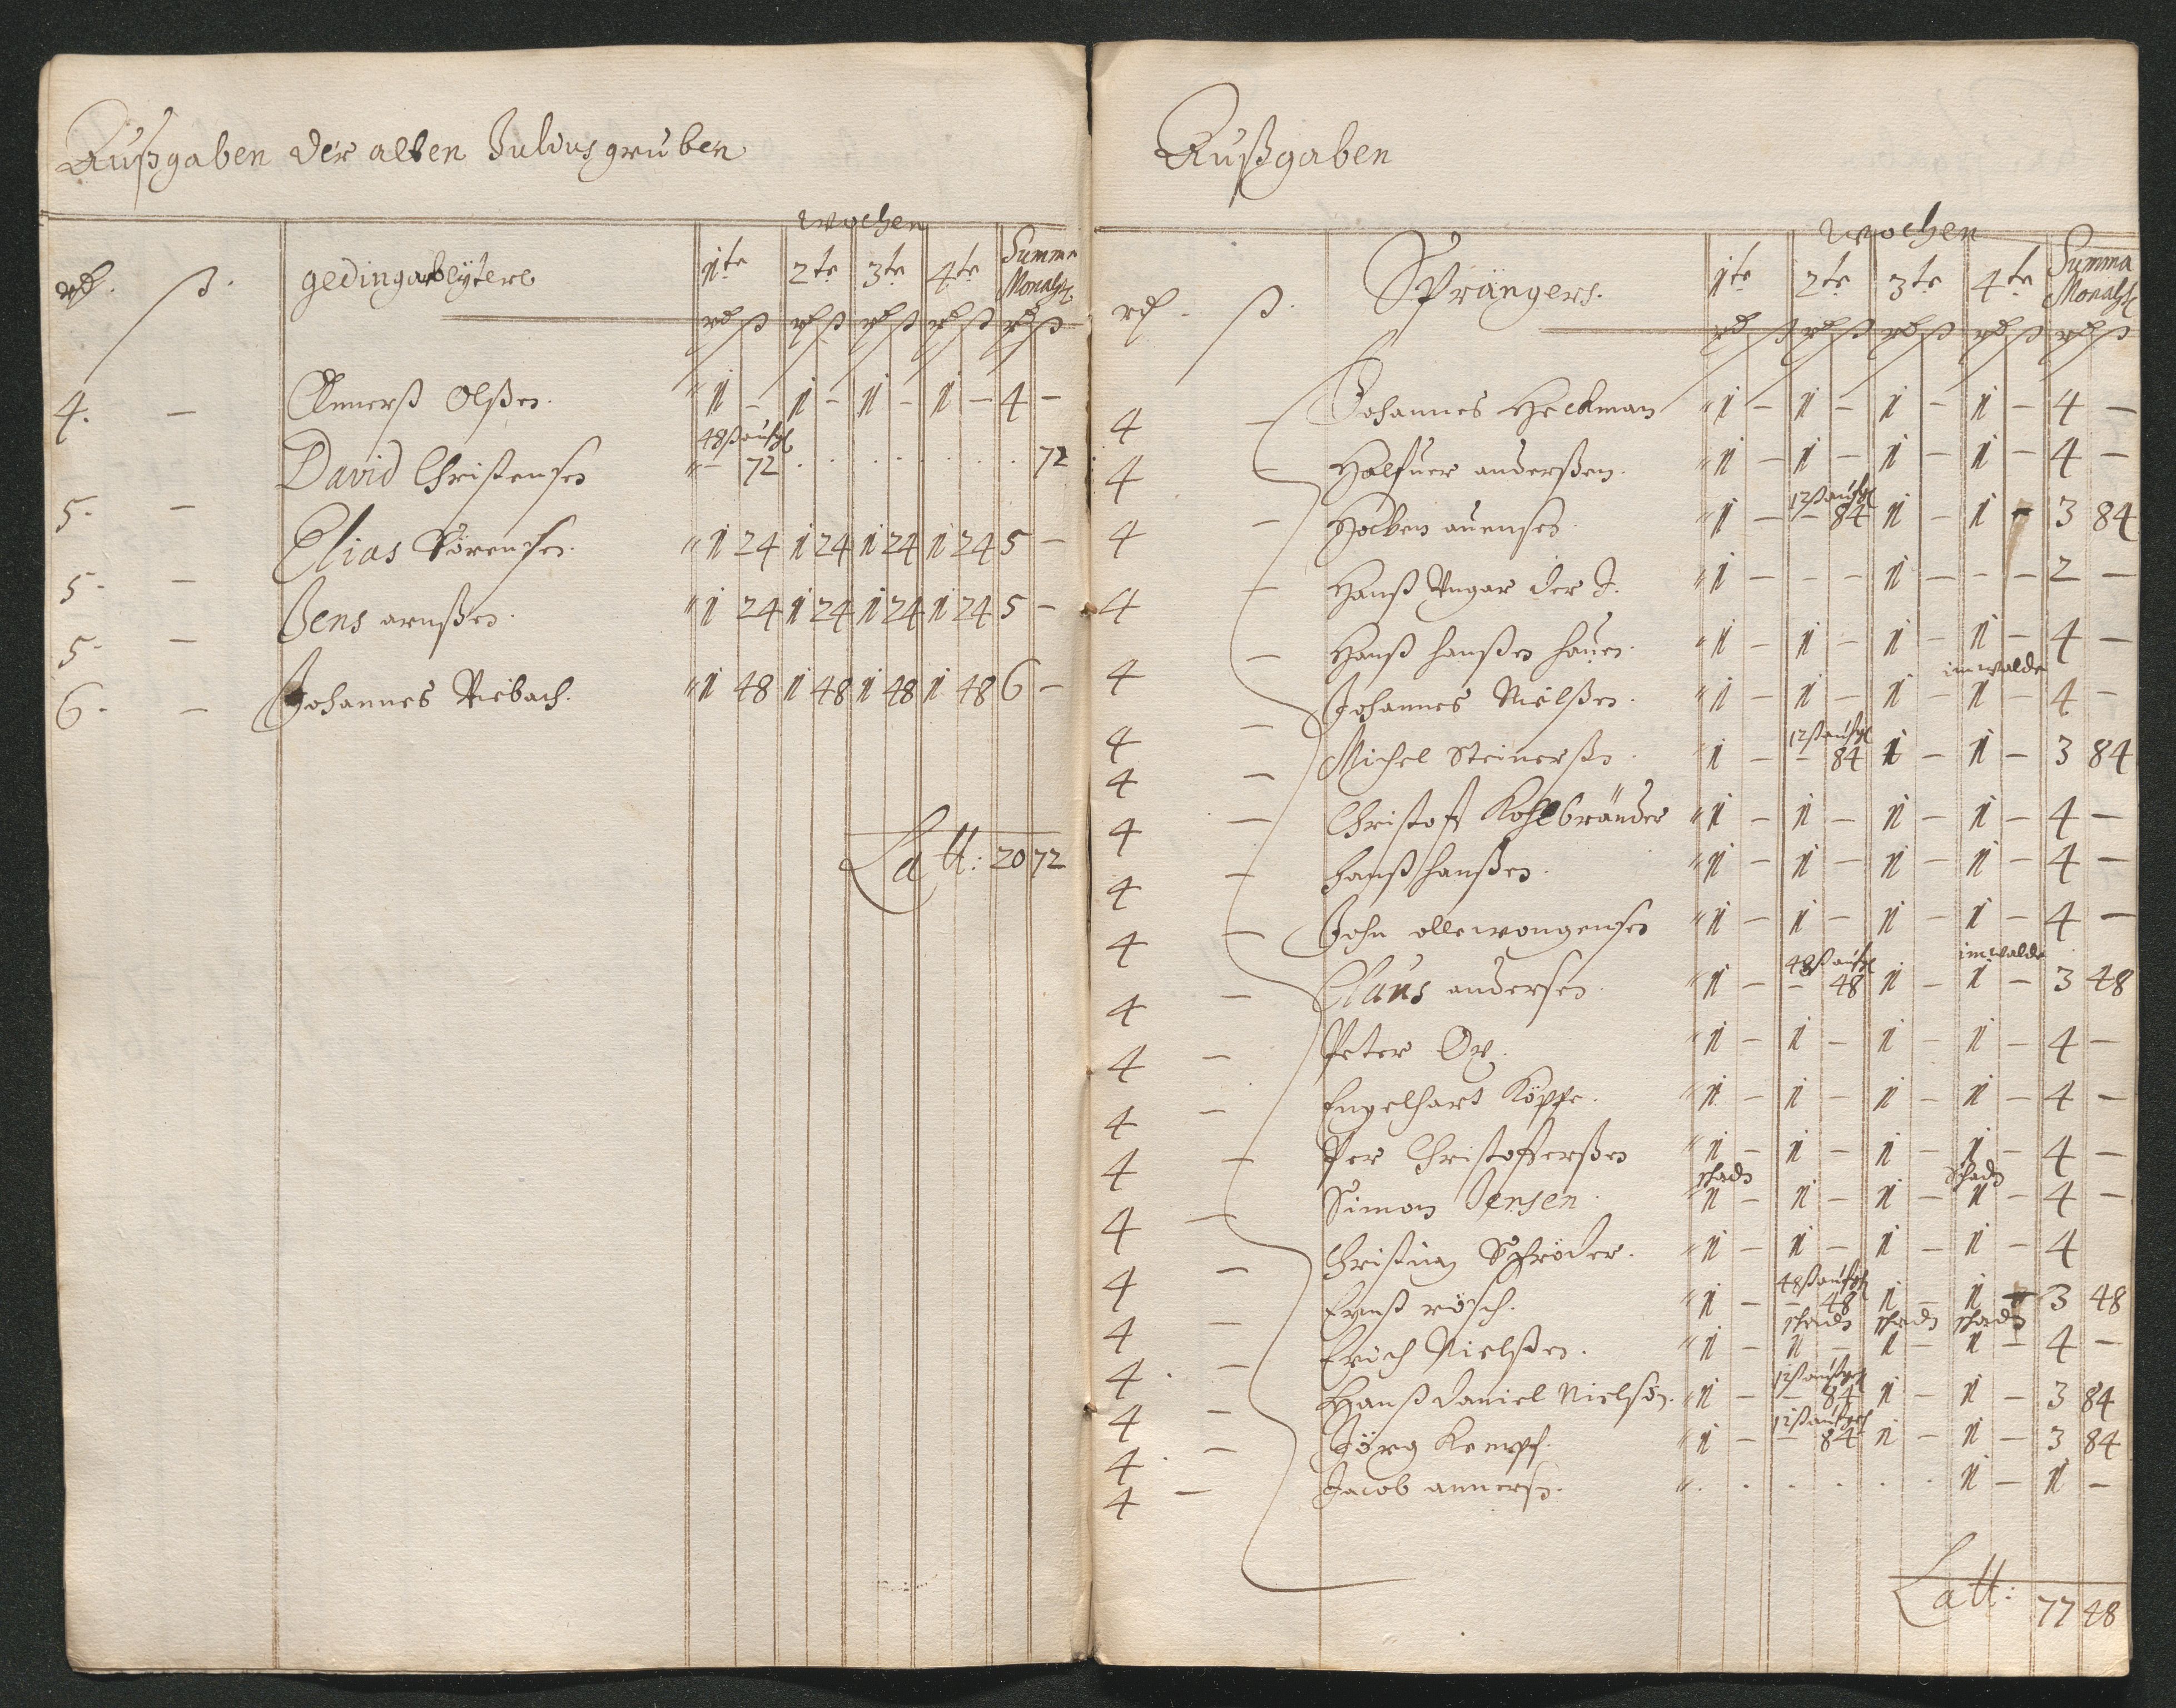 Außgaben der alten Juldus gruben
wochen
rd. ß. gedingarbeÿtere 1te 2te 3te 4te Summa Monahtl
rd ß rd ß rd ß rd ß rd ß
4. — Anners Olßen. " 1 — 1 — 1 — 1 — 4 —
48 ß aufzl
5. — David Christensen " — 72 . . . . . . 72
5. — Elias Sörensen. " 1 24 1 24 1 24 1 24 5 —
5. — Jens arnßen. " 1 24 1 24 1 24 1 24 5 —
6. — Johannes Viebach. " 1 48 1 48 1 48 1 48 6 —
Latt: 20 72
Außgaben
wochen
rd. ß. Sprängers. 1te 2te 3te 4te Summa Monahtl
rd ß rd ß rd ß rd ß rd ß
4 — Johannes Heckman " 1 — 1 — 1 — 1 — 4 —
4 — Halfuer anderßen. " 1 — 1 — 1 — 1 — 4 —
12 ß aufzl
4 — auensen. " 1 — — 84 1 — 1 — 3 84
4 — Hanß Ungar der J. " 1 — — — 1 — — — 2 —
4 — Hanß hanßen hauen. " 1 — 1 — 1 — 1 — 4 —
im walde
4 — Johannes Nielßen. " 1 — 1 — 1 — 1 — 4 —
12 ß aufzl
4 — Michel Steinerßn. " 1 — — 84 1 — 1 — 3 84
4 — Christoff Kohlbränder " 1 — 1 — 1 — 1 — 4 —
4 — hanß hanßen. " 1 — 1 — 1 — 1 — 4 —
4 — John ollewongensen " 1 — 1 — 1 — 1 — 4 —
48 ß aufzl im walde
4 — Claus andersen. " 1 — — 48 1 — 1 — 3 48
4 — Peter Ox. " 1 — 1 — 1 — 1 — 4 —
4 — Engelhart Köppe. " 1 — 1 — 1 — 1 — 4 —
4 — Per Christofferßen " 1 — 1 — 1 — 1 — 4 —
schadn Schadn
4 — Simon Jensen. " 1 — 1 — 1 — 1 — 4 —
4 — Christian Schröder. " 1 — 1 — 1 — 1 — 4
48 ß aufzl
4 — Ernst rösch. " 1 — — 48 1 — 1 — 3 48
schadn schadn schadn
4. — Erich Nielßen. " 1 — 1 — 1 — 1 — 4 —
12 ß aufzl
4 — Hanß Daniel Nielsön. " 1 — — 84 1 — 1 — 3 84
12 ß aufzl
4. — Jörg Kempf. " 1 — — 84 1 — 1 — 3 84
4 — Jacob annersn. " . . . . . . 1 — 1 —
Latt: 77 48